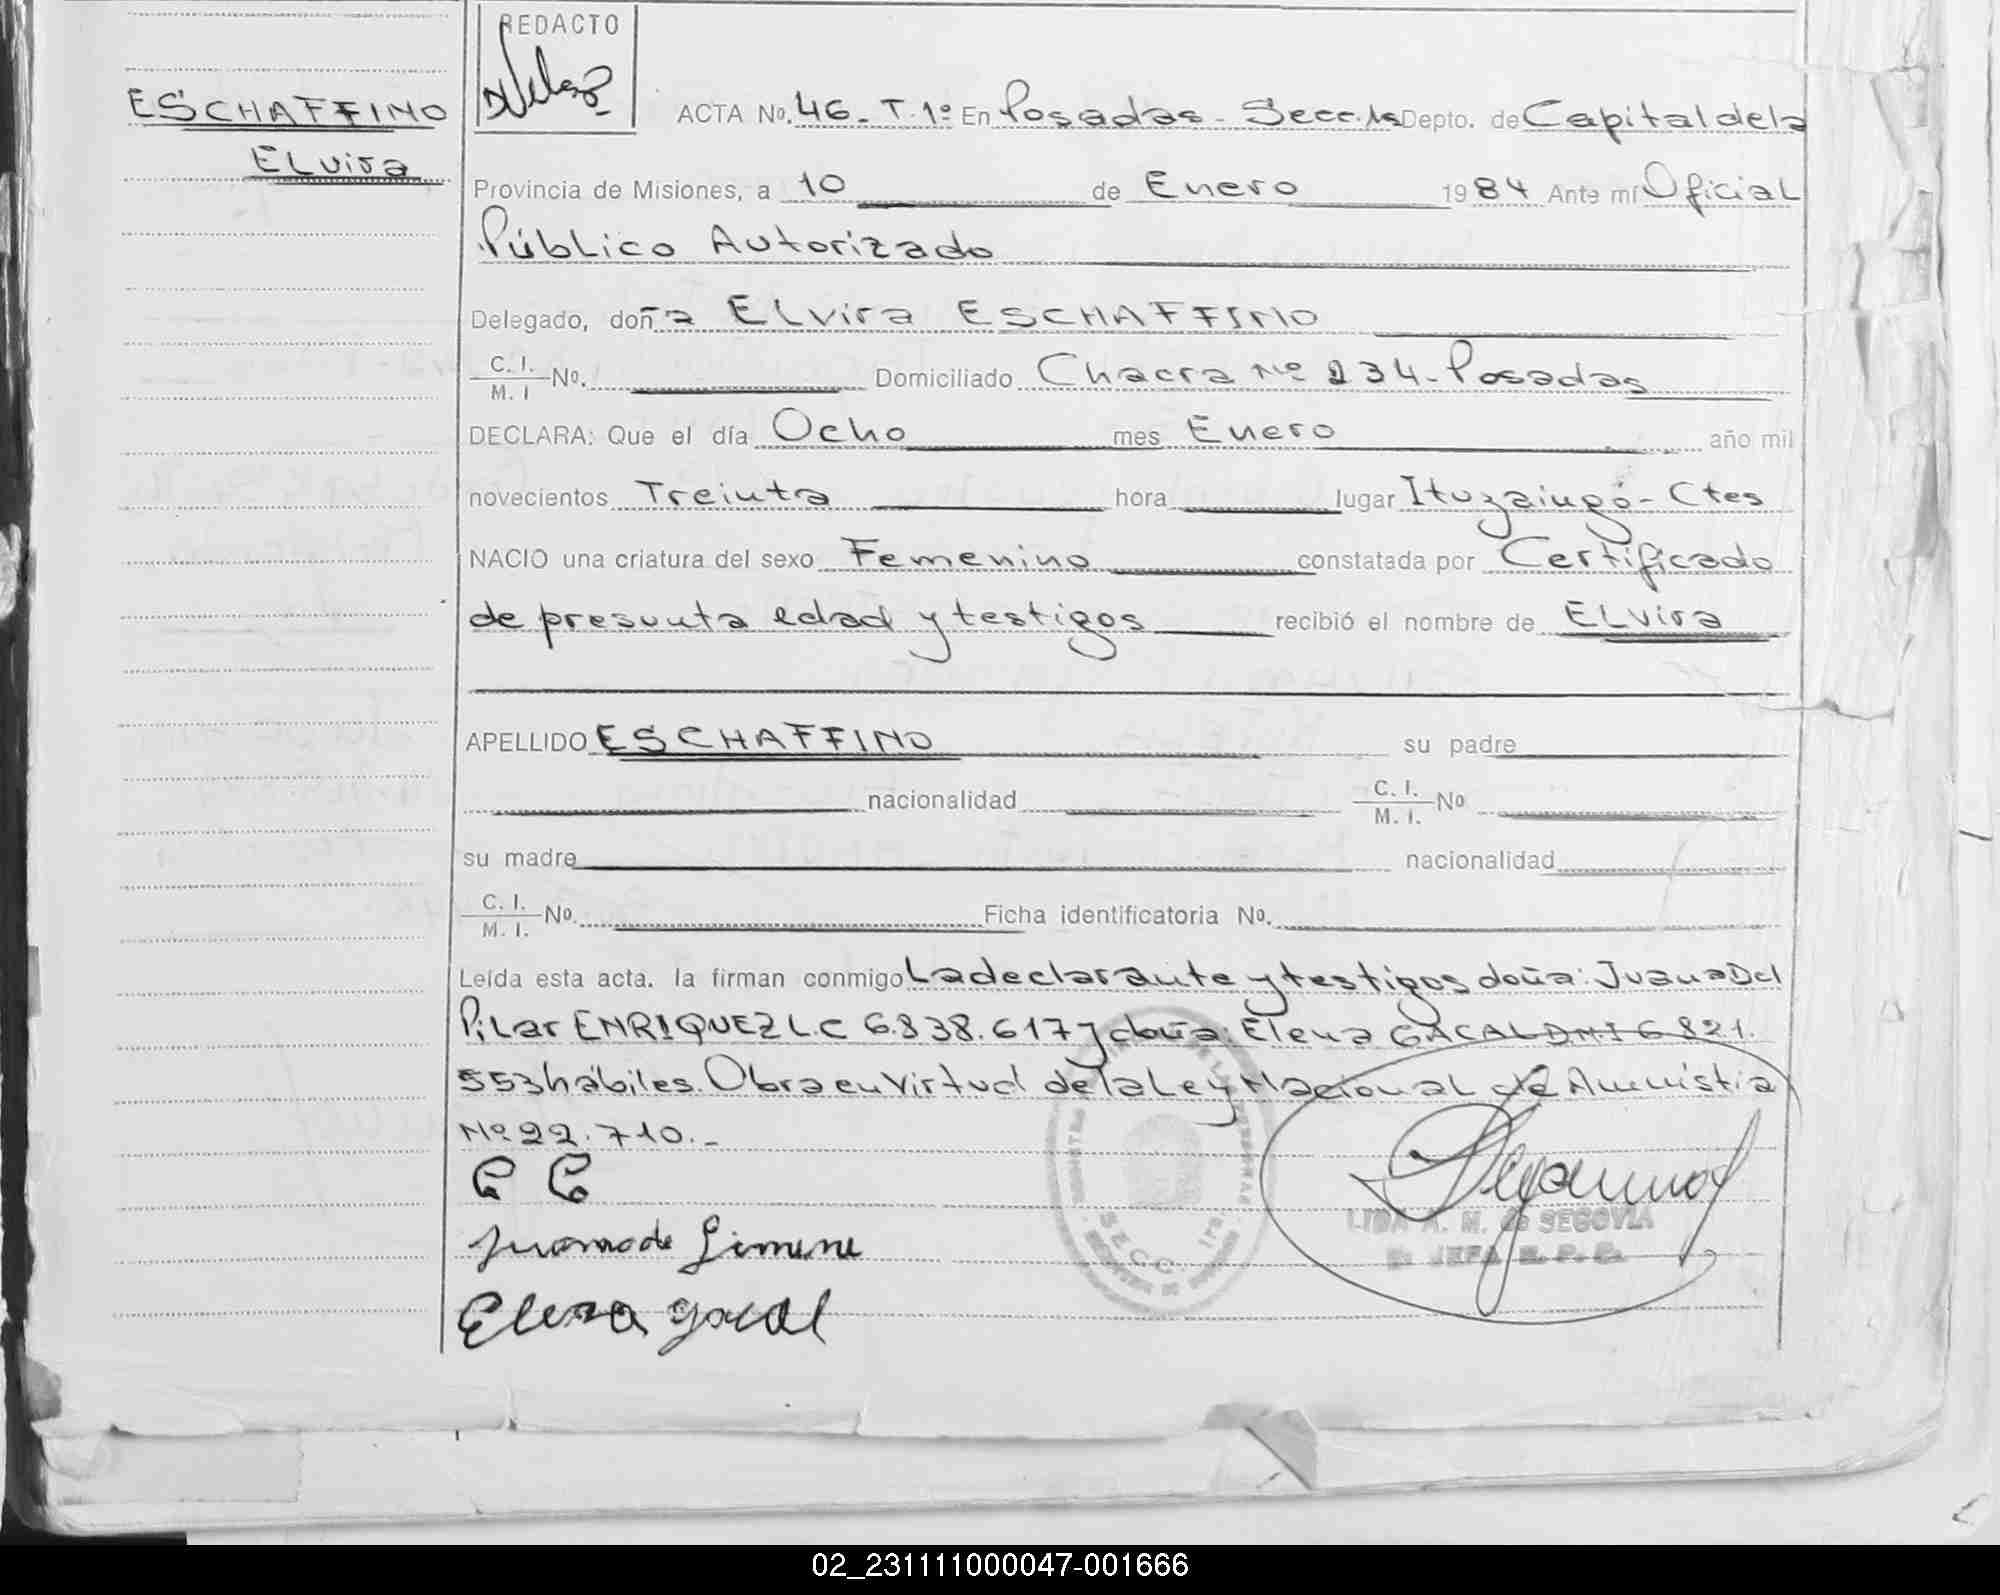 ESCHAFFINO
Elvira
REDACTO
ACTA No. 46 - T. 1º En Posadas - Secc. 1a Depto. de Capital de la
Provincia de Misiones, a 10 de Enero 1984 Ante mí Oficial
Público Autorizado
Delegado, doña Elvira ESCHAFFINO
C. I. / M. I No. Domiciliado Chacra Nº 234 - Posadas
DECLARA: Que el día Ocho mes Enero año mil
novecientos Treinta hora lugar Ituzaingó - Ctes
NACIO una criatura del sexo Femenino constatada por Certificado
de presunta edad y testigos recibió el nombre de Elvira
APELLIDO ESCHAFFINO su padre
nacionalidad C. I. / M. I. No
su madre nacionalidad
C. I. / M. I. No. Ficha identificatoria No.
Leída esta acta, la firman conmigo La declarante y testigos doña: Juana Del
Pilar ENRIQUEZ L.C 6.838.617 y doña: Elena GACAL DNI 6821.
553 hábiles. Obra en Virtud de la Ley Nacional de Amnistia
Nº 22.710.-
Juana de Gimene
Elena Gacal
LIDA A. M. de SEGOVIA
SECC. 1ra.
02_231111000047-001666